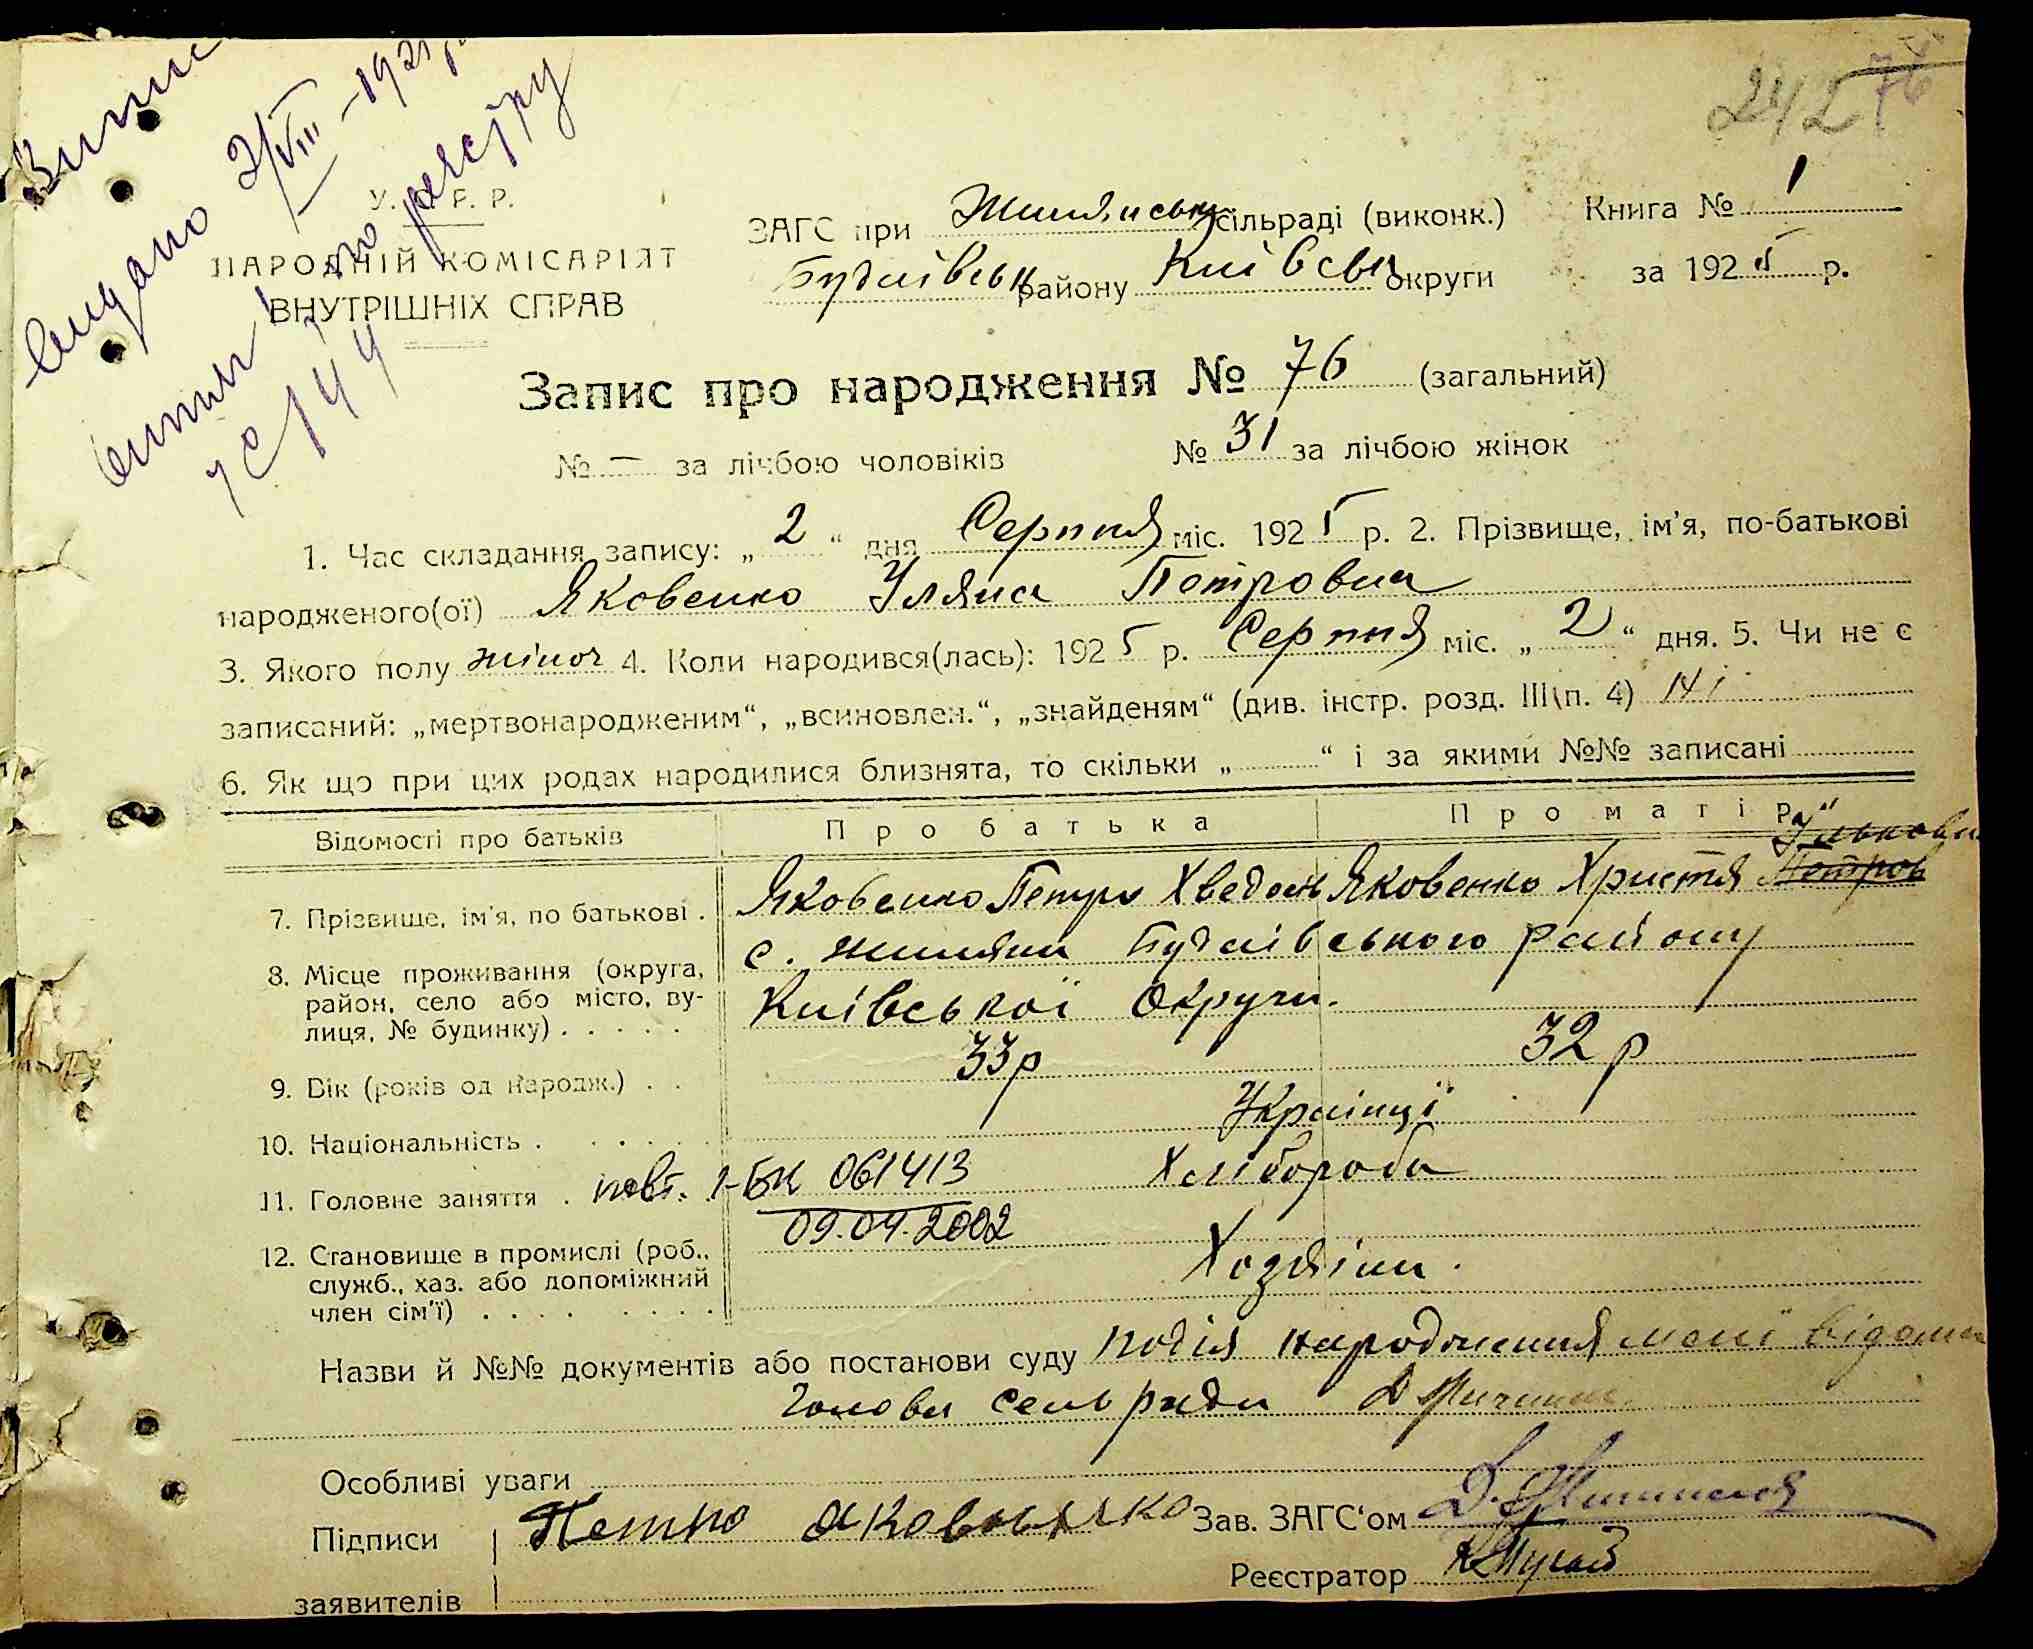 Видано 2/VIII-1925 р.
по реєстру
№ 144
242 76
У. С. Р. Р.
НАРОДНІЙ КОМІСАРІЯТ
ВНУТРІШНІХ СПРАВ
ЗАГС при Жилянськ сільраді (виконк.) Книга № 1
Будаївськ району Київськ округи за 1925 р.
Запис про народження № 76 (загальний)
№ — за лічбою чоловіків № 31 за лічбою жінок
1. Час складання запису: „ 2 “ дня Серпня міс. 1925 р. 2. Прізвище, ім'я, по-батькові
народженого(ої) Яковенко Уляна Петровна
3. Якого полу жіноч 4. Коли народився(лась): 1925 р. Серпня міс. „ 2 “ дня. 5. Чи не є
записаний: „мертвонародженим“, „всиновлен.“, „знайденям“ (див. інстр. розд. III\п. 4) Ні
6. Як що при цих родах народилися близнята, то скільки „ “ і за якими №№ записані
Відомості про батьків Про батька Про матір
7. Прізвище, ім'я, по батькові . Яковенко Петро Хведось Яковенко Христя Петров
8. Місце проживання (округа, район, село або місто, вулиця, № будинку) . . . . . с. Жиляни Будаївського району
Київської Округи.
9. Вік (років од народж.) . . 33р 32р
10. Національність . . . . . . Українці
11. Головне заняття . повт. 1-БК 061413 Хлібороби
09.04.2002
12. Становище в промислі (роб., служб., хаз. або допоміжний член сім'ї) . . . . . . . . Хозяїни.
Назви й №№ документів або постанови суду подія народження мені відома
Голова сельради
Особливі уваги
Підписи Петро Яковенко Зав. ЗАГС'ом
заявителів Реєстратор